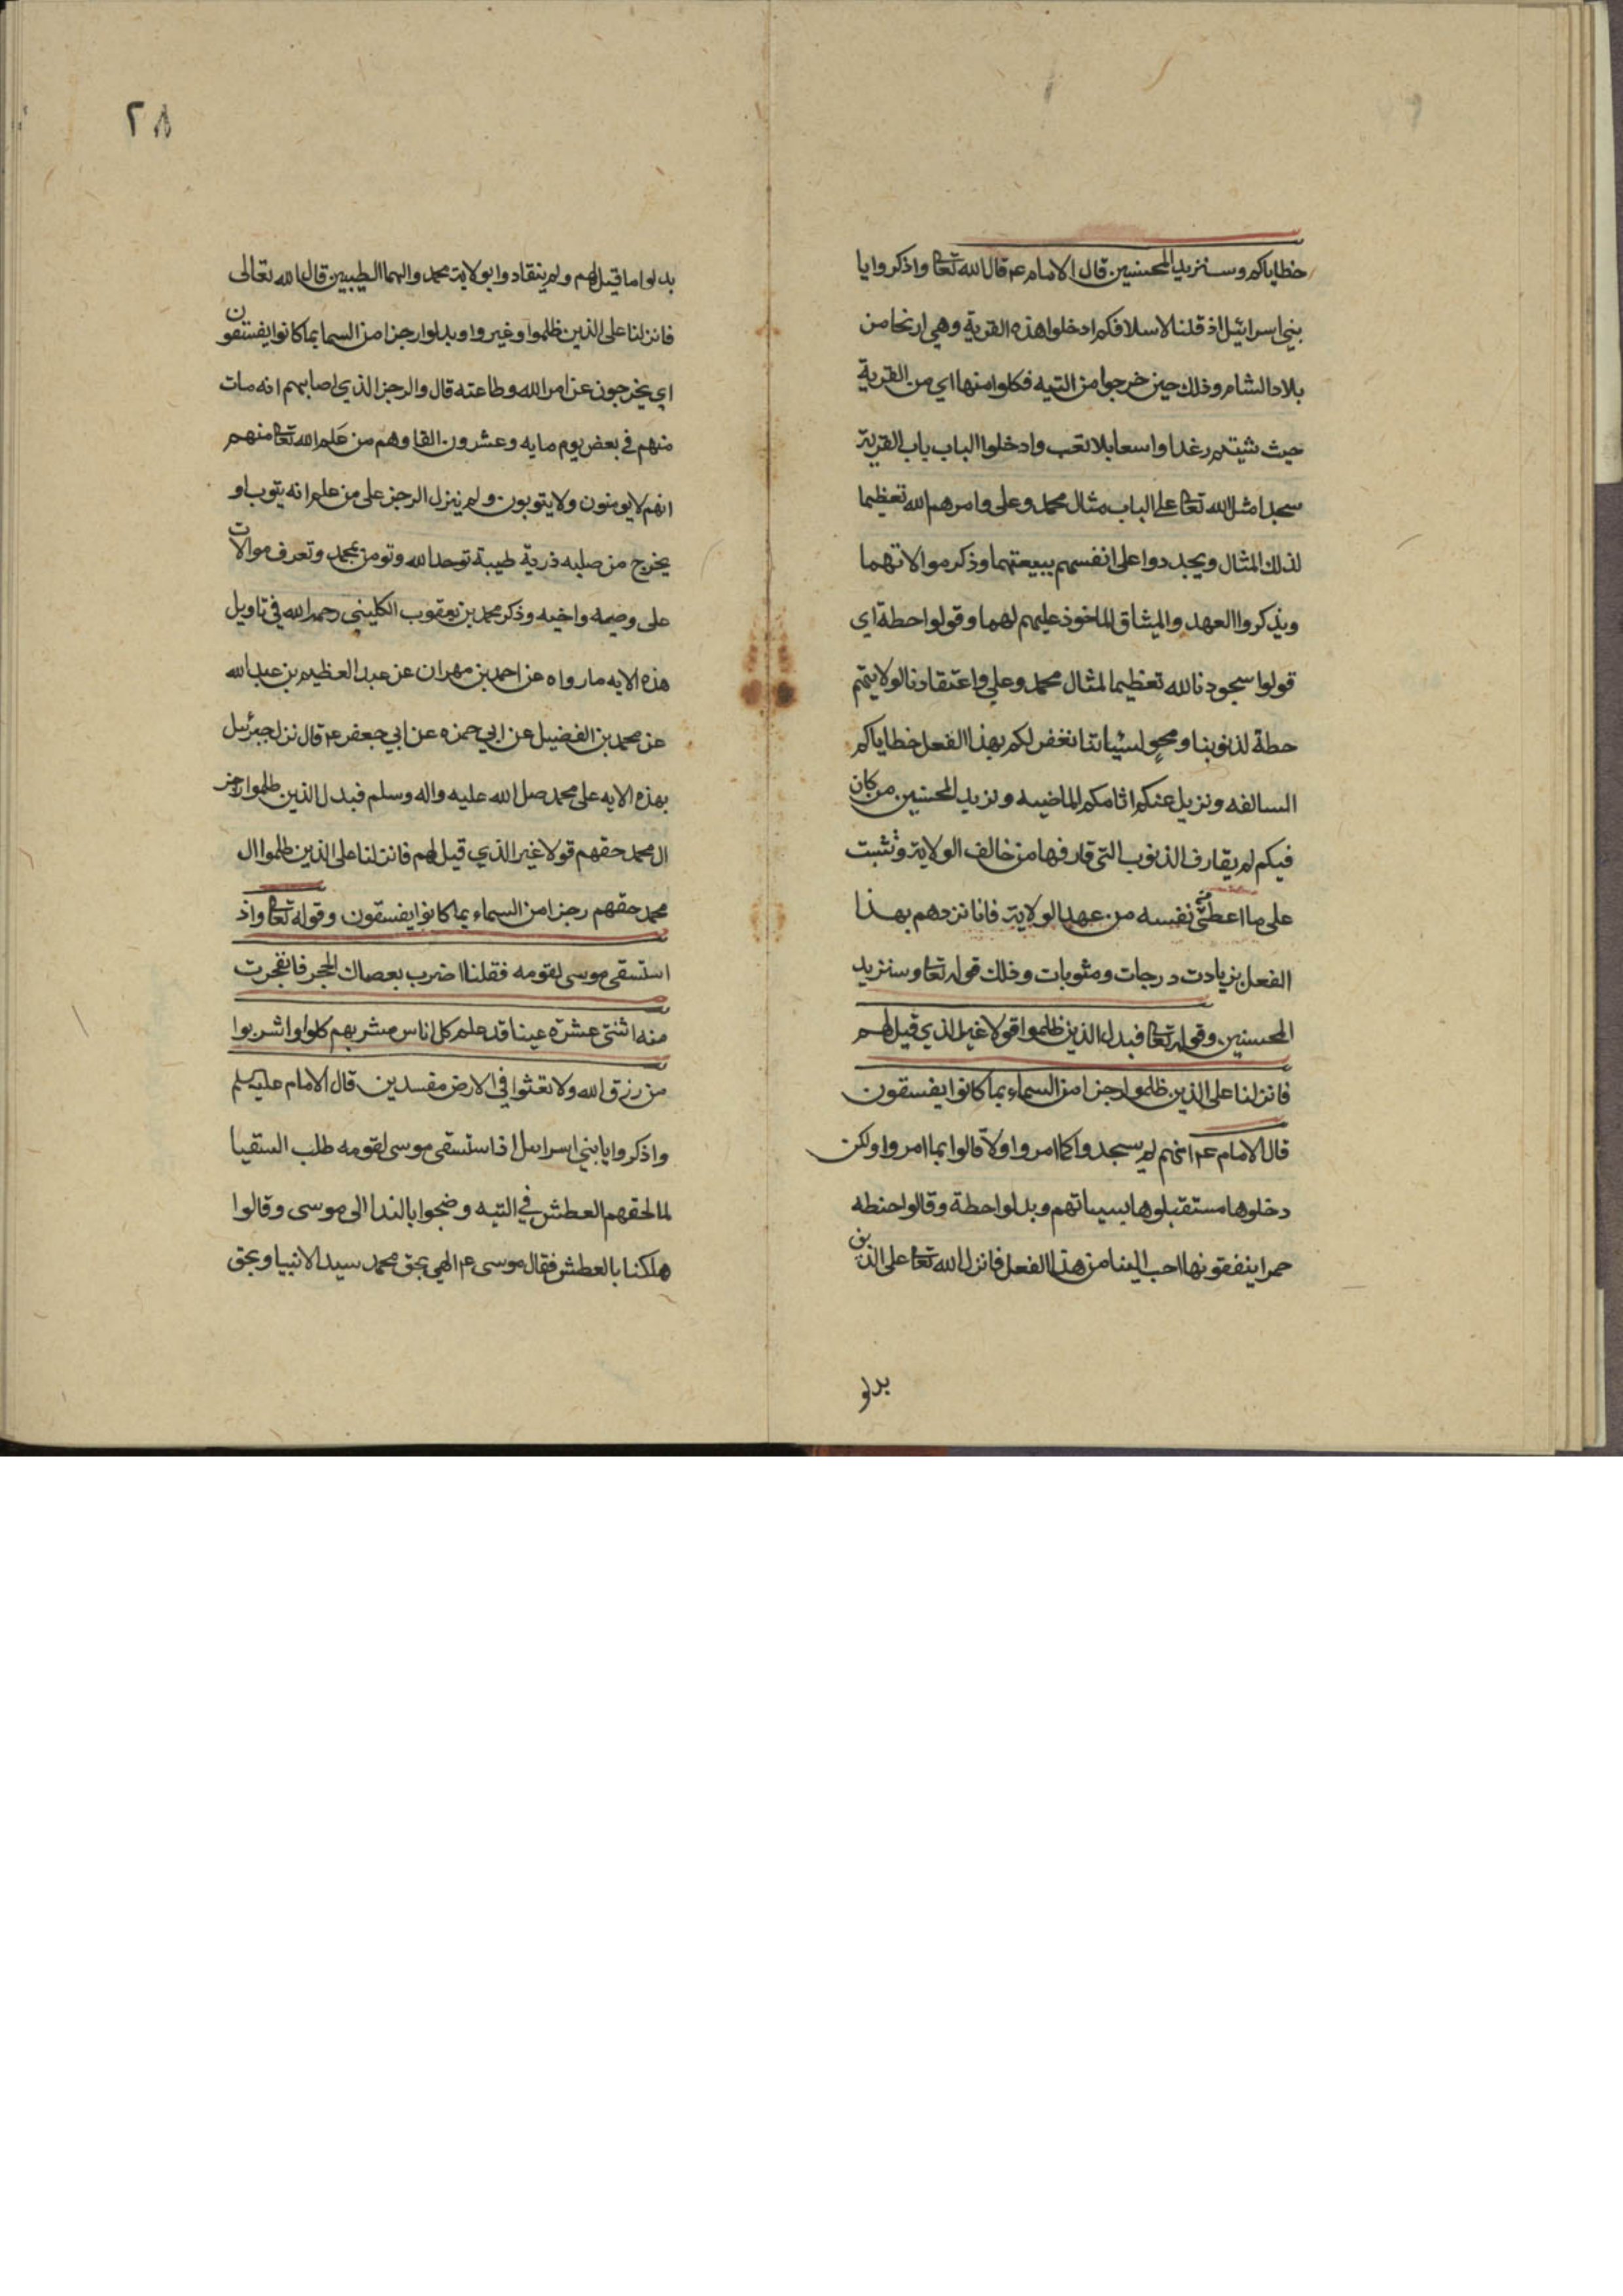 خطاياكم وسنزيد المحسنين قال الامام ع م قال الله تعا واذكروا يا
بني اسرائيل اذ قلنا لاسلافكم ادخلوا هذه القرية وهي اريحا من
بلاد الشام وذلك حين خرجوا من التيه فكلوا منها اي من القرية
حيث شيتم رغدا واسعا بلا تعب وادخلوا الباب باب القرية
سجدا مثل الله تعا على الباب مثال محمد وعلى وامرهم لله تعظيما
لذلك المثال ويجددوا على انفسهم ببيعتهما وذكر موالاتهما
ويذكروا العهد والميثاق الماخوذ عليهم لهما وقولوا حطة اي
قولوا سجودنا لله تعظيما لمثال محمد وعلي واعتقادنا لولايتهم
حطة لذنوبنا ومحو لسيئاتنا نغفر لكم بهذا الفعل خطاياكم
السالفه ونزيل عنكم اثامكم الماضيه ونزيد المحسنين من كان
فيكم لم يقارف الذنوب التي قارفها من خالف الولاية وثبت
على ما اعطى نفسه من عهد الولاية فانا نزدهم بهذا
الفعل بزيادت درجات ومثوبات وذلك قوله تعا وسنزيد
المحسنين وقوله تعا فبدل الذين ظلموا قولا غير الذي قيل لهم
فانزلنا على الذين ظلموا رجزا من السماء بما كانوا يفسقون
قال الامام ع م انهم لم يسجدوا كما امروا ولا قالوا بما امروا ولكن
دخلوها مستقبلوها بسيياتهم وبدلوا حطة وقالوا حنطه
حمرا ينفقونها احب الينا من هذا الفعل فانزل الله تعا على الذين
بدلو
٢٨
بدلوا ما قيل لهم ولم ينقادوا بولاية محمد والهما الطيبين قال الله تعالى
فانزلنا على الذين ظلموا وغيروا وبدلوا رجزا من السما بما كانوا يفسقون
اي يخرجون عن امر الله وطاعته قال والرجز الذي اصابهم انه مات
منهم في بعض يوم مايه وعشرون الفا وهم من علم الله تعا منهم
انهم لا يومنون ولا يتوبون ولم ينزل الرجز على من علم انه يتوب او
يخرج من صلبه ذرية طيبة توحد الله وتومن بمحمد وتعرف موالات
على وصيه واخيه وذكر محمد بن يعقوب الكليني رحمه الله في تاويل
هذه الايه ما رواه عن احمد بن مهران عن عبد العظيم بن عبد الله
عن محمد بن الفضيل عن ابي حمزه عن ابي جعفر ع م قال نزل جبرئيل
بهذه الايه على محمد صل الله عليه واله وسلم فبدل الذين ظلموا
ال محمد حقهم قولا غير الذي قيل لهم فانزلنا على الذين ظلموا ال
محمد حقهم رجزا من السماء بما كانوا يفسقون وقوله تعا واذ
استسقى موسى لقومه فقلنا اضرب بعصاك الحجر فانفجرت
منه اثنتى عشرة عينا قد علم كل اناس مشربهم كلوا واشربوا
من رزق الله ولا تعثوا في الارض مفسدين قال الامام عليه سلم
واذكروا يا بني اسراىل اذ استسقى موسى لقومه طلب السقيا
لما لحقهم العطش في التيه وضجوا بالندا الى موسى وقالوا
هلكنا بالعطش فقال موسى ع م الهي بحق محمد سيد الانبيا وبحق